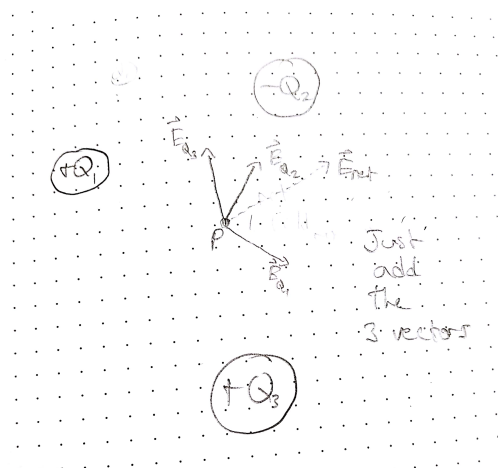 -Q₂
+Q₁
E⃗Q₃
E⃗Q₂
E⃗net
P
E⃗Q₁
Just
add
the
3 vectors
+Q₃